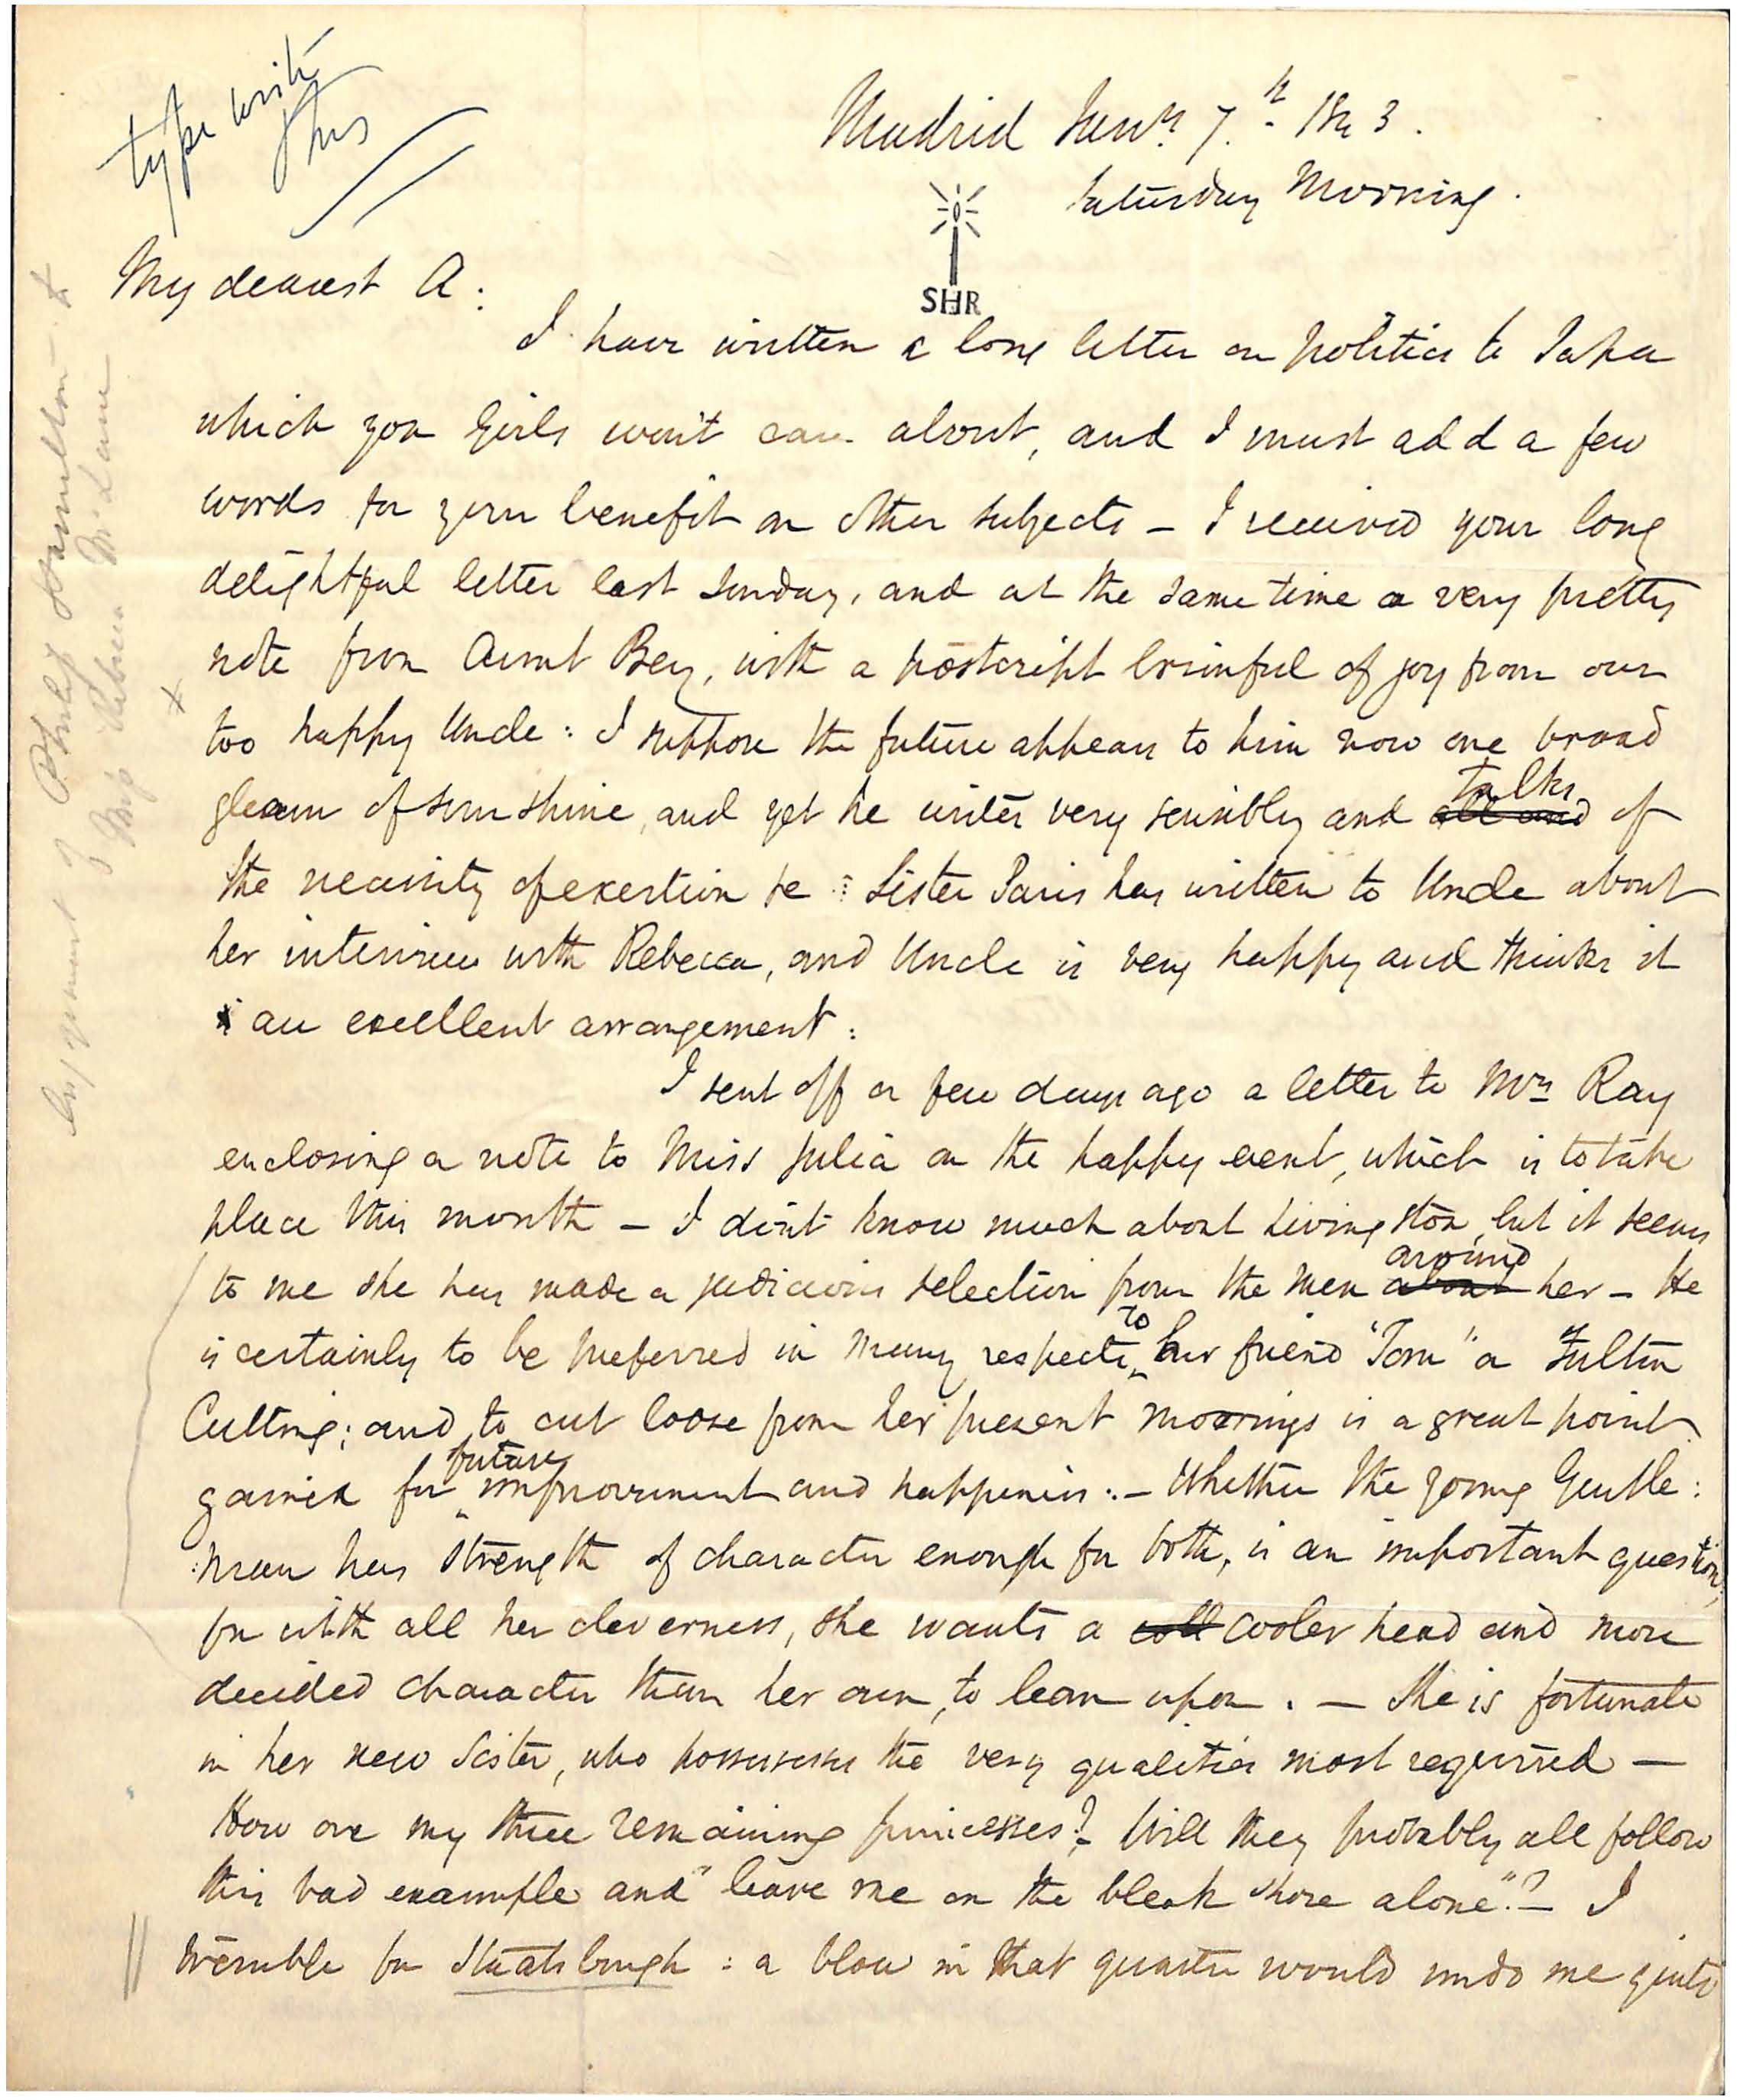 type write
this
Madrid Jany. 7th. 1843.
Saturday Morning.
SHR
My dearest A:
I have written a long letter on politics to Papa
which you Girls won't care about, and I must add a few
words for your benefit on other subjects – I received your long
delightful letter last Sunday, and at the same time a very pretty
note from Aunt Bey, with a postcript brimful of joy from our
too happy Uncle: I suppose the future appears to him now one broad
gleam of sunshine, and yet he writes very sensibly and talks of
the necessity of exertion &c: Sister Paris has written to Uncle about
her interview with Rebecca, and Uncle is very happy and thinks it
an excellent arrangement:
I sent off a few days ago a letter to Mrs Ray
enclosing a note to Miss Julia on the happy event, which is to take
place this month – I don't know much about Livingston, but it seems
to me she has made a judicious selection from the men around her – He
is certainly to be preferred in many respects to her friend "Tom" a Fulton
Cutting; and to cut loose from her present moorings is a great point
gained for future improvement and happiness:– Whether the young Gentle:
:man has strength of character enough for both, is an important question,
for with all her cleverness, she wants a cooler head and more
decided character than her own, to lean upon. – She is fortunate
in her new Sister, who possesses the very qualities most required –
How are my three remaining princesses? Will they probably all follow
this bad example and "leave me on the bleak shore alone"? – I
tremble for Staatsburgh: a blow in that quarter would undo me quite
Engagement of Philip Hamilton &
Miss Rebecca McLane